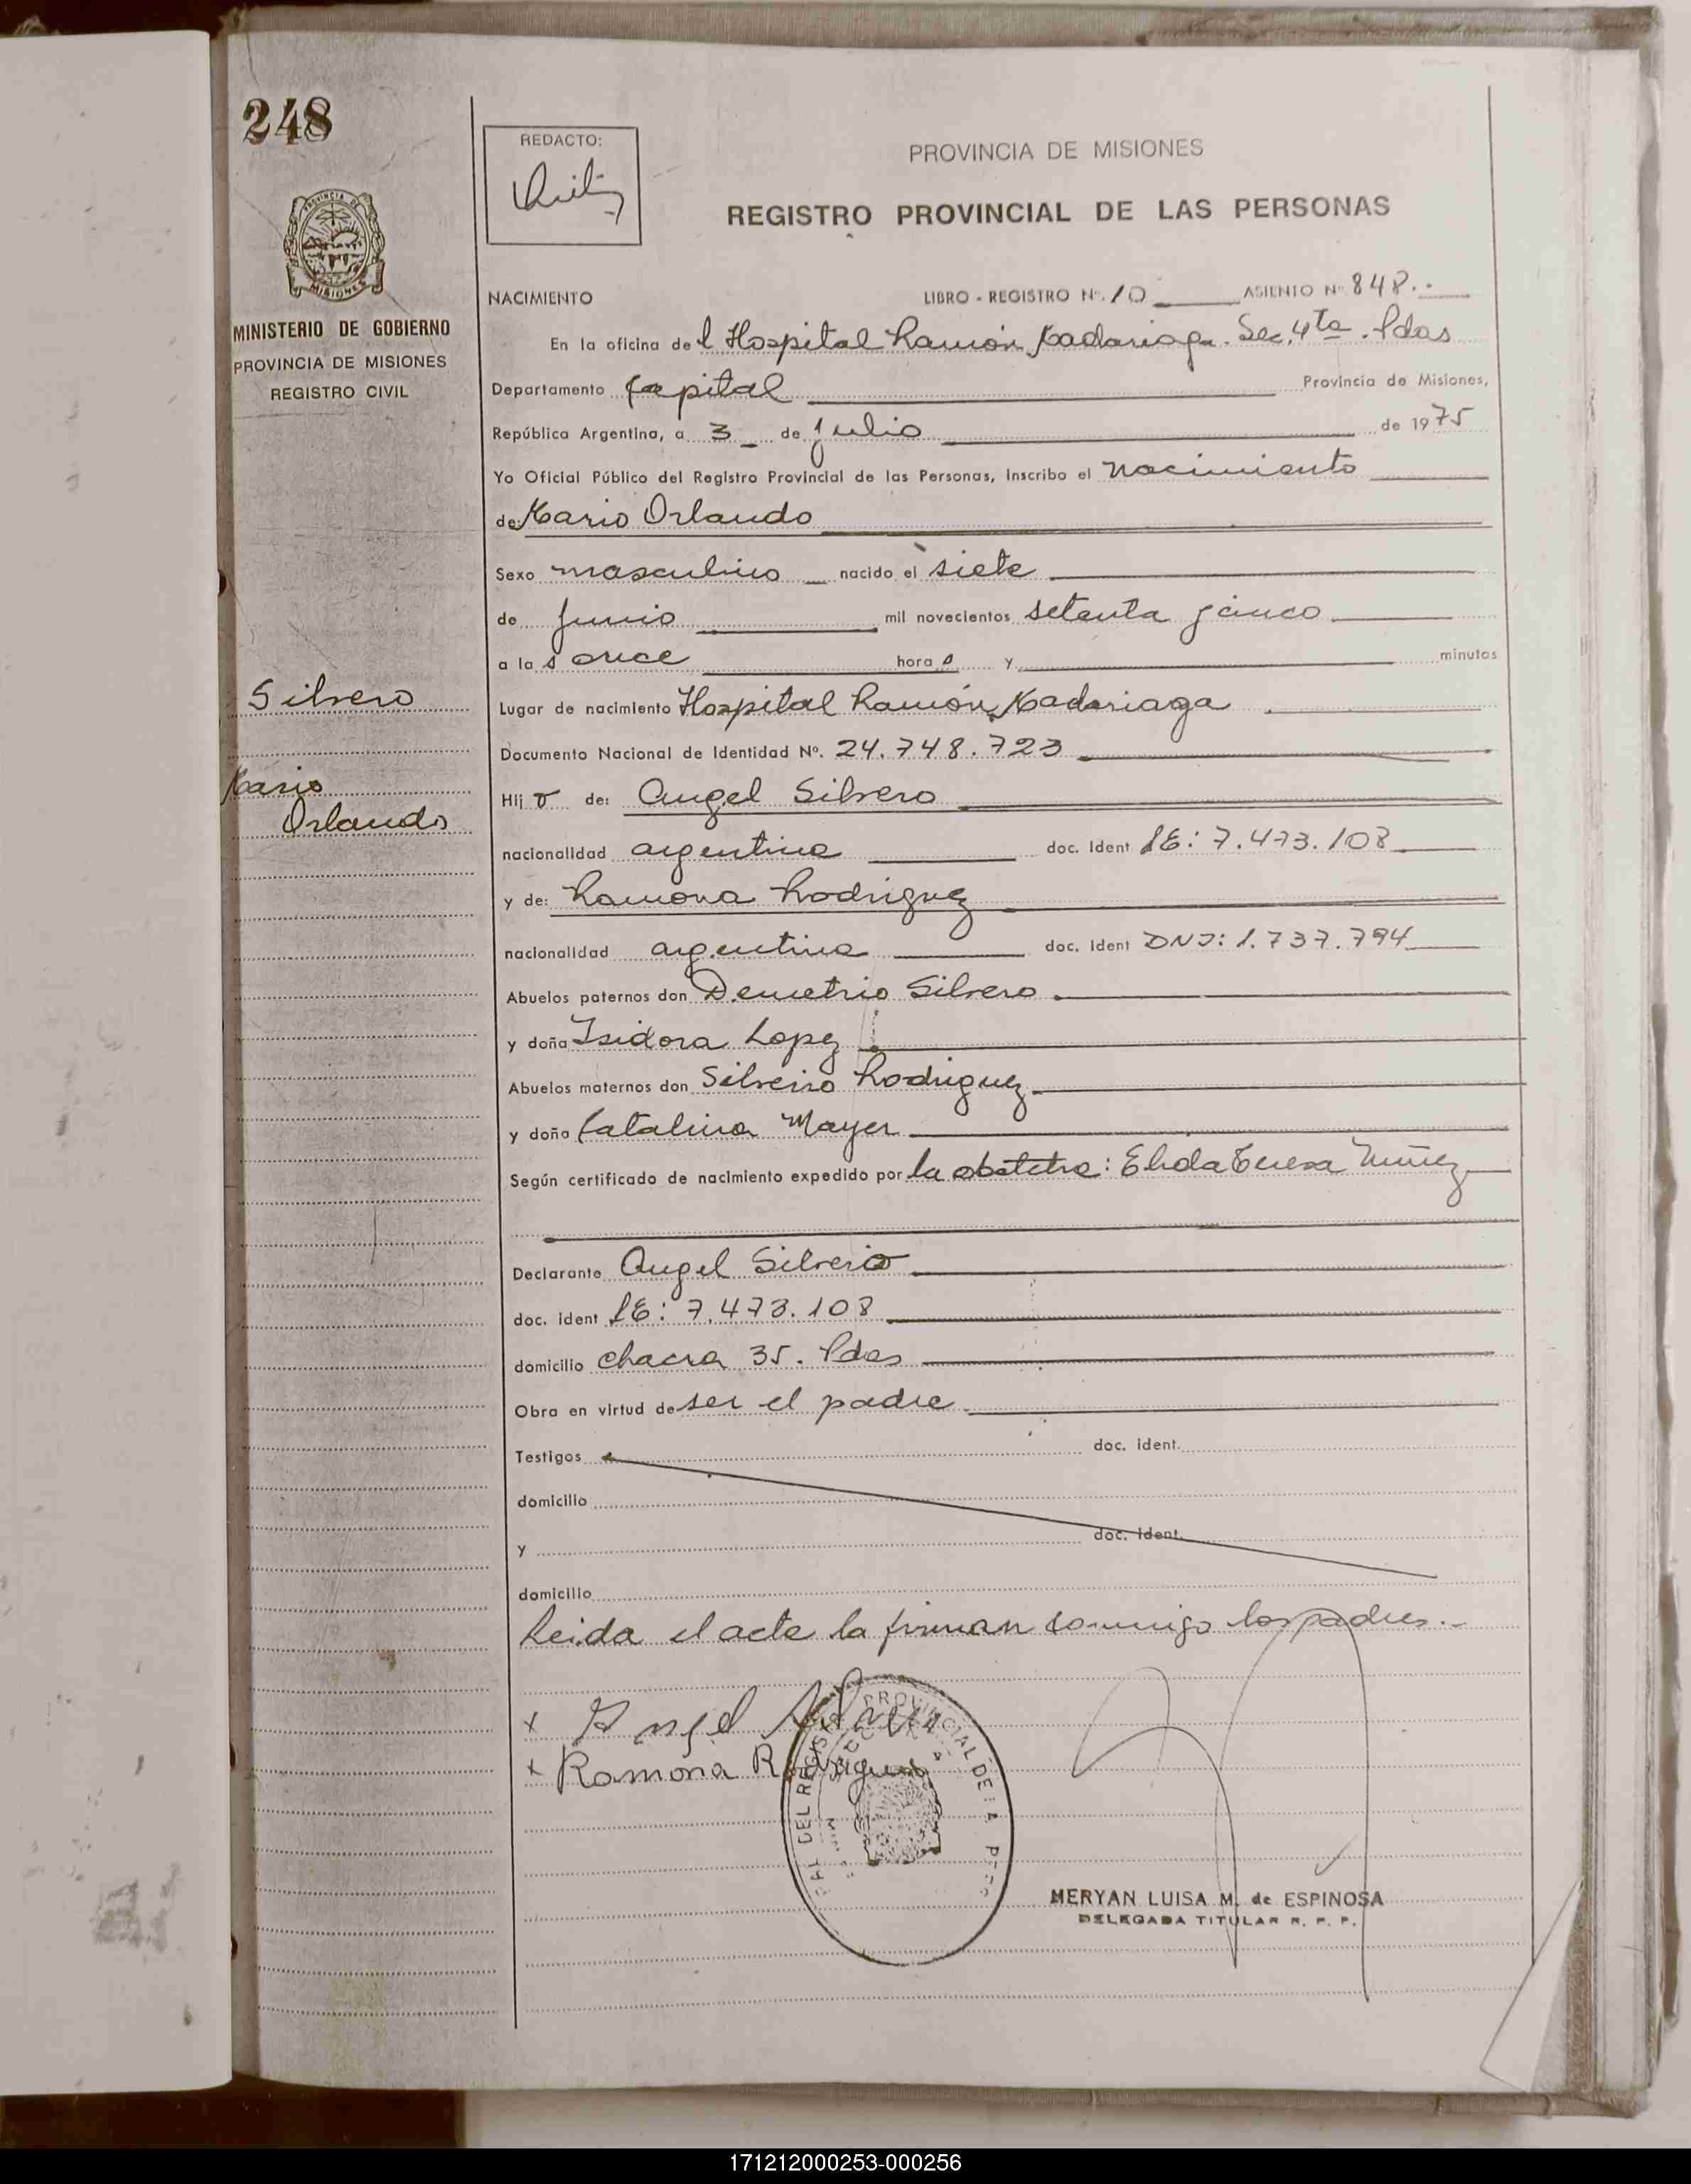 248
REDACTO:
PROVINCIA DE MISIONES
REGISTRO PROVINCIAL DE LAS PERSONAS
MISIONES
MINISTERIO DE GOBIERNO
PROVINCIA DE MISIONES
REGISTRO CIVIL
NACIMIENTO LIBRO - REGISTRO Nº. 10 ASIENTO Nº 848.-
En la oficina del Hospital Ramón Madariaga. Sec. 4ta. Pdas
Departamento Capital Provincia de Misiones,
República Argentina, a 3 de julio de 1975
Yo Oficial Público del Registro Provincial de las Personas, inscribo el nacimiento
de: Mario Orlando
Sexo masculino nacido el siete
de junio mil novecientos setenta y cinco
a las once horas y minutos
Silvero
Lugar de nacimiento Hospital Ramón Madariaga
Documento Nacional de Identidad Nº. 24.748.723
Mario
Orlando
Hijo de: Angel Silvero
nacionalidad argentina doc. Ident LE: 7.473.108
y de: Ramona Rodriguez
nacionalidad argentina doc. Ident DNI: 1.737.794
Abuelos paternos don Demetrio Silvero
y doña Isidora Lopez
Abuelos maternos don Silverio Rodriguez
y doña Catalina Mayer
Según certificado de nacimiento expedido por la obstetra: Elida Teresa Nuñez
Declarante Angel Silvero
doc. ident LE: 7.473.108
domicilio chacra 35. Pdas
Obra en virtud de ser el padre
Testigos doc. ident.
domicilio
y doc. ident.
domicilio
Leida el acta la firman conmigo los padres.-
x Angel Silvero
x Ramona Rodriguez
MERYAN LUISA M. de ESPINOSA
DELEGADA TITULAR R. P. P.
171212000253-000256